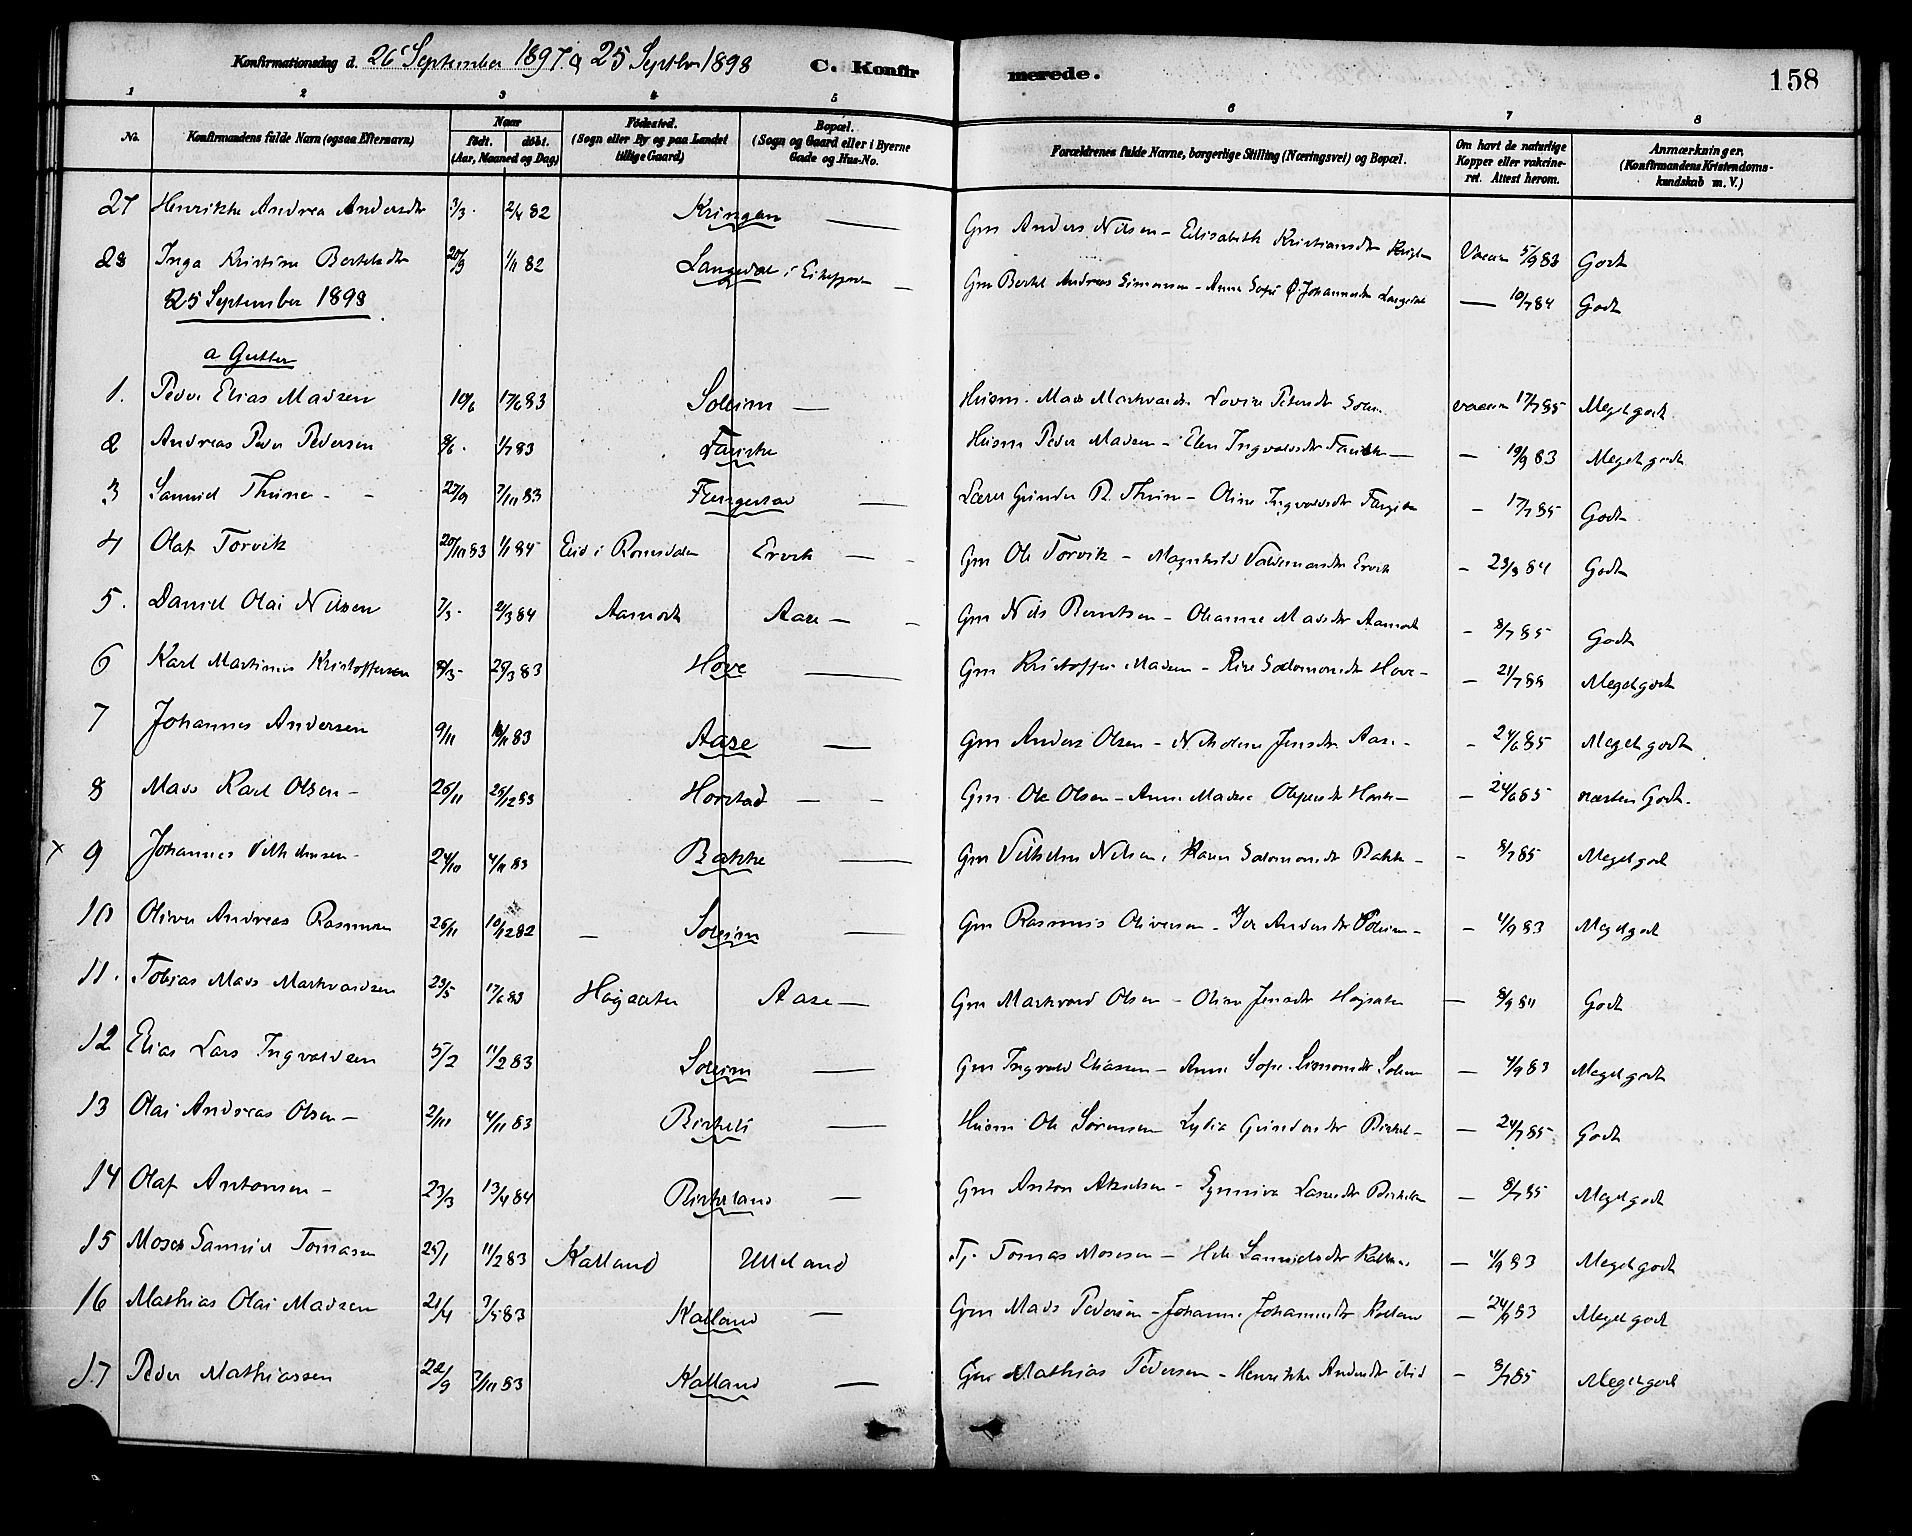 Konfirmationsdag d. 26 September 1897. a 25 Septbr 1898 C. Konfirmerede. 158
1 2 3 4 5 6 7 8
No. Konfirmandens fulde Navn (ogsaa Efternavn) Naar født. døbt. (Aar, Maaned og Dag) Fødested. (Sogn eller By og paa Landet tillige Gaard) Bopæl. (Sogn og Gaard eller i Byerne Gade og Hus-No. Forældrenes fulde Navne, borgerlige Stilling (Næringsvei) og Bopæl. Om havt de naturlige Kopper eller vakcineret. Attest herom. Anmærkninger, (Konfirmandens Kristendomskundskab m. V.)
27 Henrikke Andrea Andersdtr 3/3 2/4 82 Kringen — Gm Anders Nilsen - Elisabeth Kristiansdtr Vaccin 5/9 83 Godt
28 Inga Kristine Berteldtr 20/9 1/11 82 Langedal i — Gm Bertel Andreas Simonsen - Anne Sofie Johannesdtr — 10/7 84 Godt
25 September 1898
a Gutter
1. Peder Elias Madsen 10/6 17/6 83 Soleim — Husm. Mads Markvardsen Lovise Petersdtr vaccin 17/7 85 Meget godt
2 Andreas Peder Pedersen 8/6 1/7 83 — Husm Peder Madsen - Elen Ingvaldsdtr — 19/9 83 Meget godt
3 Samuel Thime 27/9 7/10 83 — Lærer Gunder R. Thime - Oline Ingvaldsdtr - 17/7 85 Godt
4 Olaf Torvik 20/10 83 1/1 84 Eid i Romsdalen Ervik — Gm Ole Torvik - Magnhild Valdemarsdtr Ervik - 23/3 84 Godt
5. Daniel Olai Nilsen 7/3 2/3 84 Aamodt Aase — Gm Nils Berntsen - Olianne Madsdtr Aamodt - 8/7 85 Godt
6 Karl Martinus Kristoffersen 8/3 25/3 83 Hove — Gm Kristoffer Madsen - Salomonsdtr Hove - - 21/7 Meget godt
7 Johannes Andersen 9/11 11/11 83 Aase — Gm Anders Olsen - Nikoline Jensdtr Aase - - 24/6 85 Meget godt
8 Mads Karl Olsen - 26/11 25/12 83 Horstad — Gm. Ole Olsen - Anne Madsdtr — - 24/6 85 næsten Godt.
x 9 Johannes Vilhelmsen 24/10 4/11 83 Bakke — Gm Vilhelm Nilsen, Karen Salomonsdtr Bakke - - 8/7 85 Meget godt
10 Oliver Andreas Rasmusen 26/11 10/12 82 — Soleim — Gm Rasmus Oliversen - Andersdtr Soleim - - 4/9 83 Meget godt
11. Tobias Mads Markvardsen 23/5 17/6 83 Høgsæter Aase — Gm Markvard Olsen - Oline Jensdtr Høgsæter — 8/9 84 Godt
12 Elias Lars Ingvaldsen 5/2 11/2 83 Soleim — Gm Ingvald Eliassen - Anne Sofie Simonsdtr Soleim — 4/9 83 Meget godt
13 Olai Andreas Olsen - 2/11 4/11 83 Birkeli — Husm Ole Sørensen Lydia Gundersdtr Birkel - — 24/7 85 Godt
14 Olaf Antonsen - 23/3 13/4 84 Birkeland — Gm Anton Akselsen - Synneva Larsdtr Birkeln — 8/7 85 Meget godt
15 Moses Samuel Tomasen 25/1 11/2 83 Kalland Utteland Tj. Tomas Mosesen - Samuelsdtr — 4/9 83 Meget godt
16 Mathias Olai Madsen 21/4 3/5 83 Kalland — Gm Mads Pedersen - Johanne Johannesdtr Kalland - 24/9 83 Meget godt
17 Peder Mathiassen 22/9 7/10 83 Kalland — Gm Mathias Pedersen - Henrikke Andersdtr ibid - 3/7 85 Meget godt